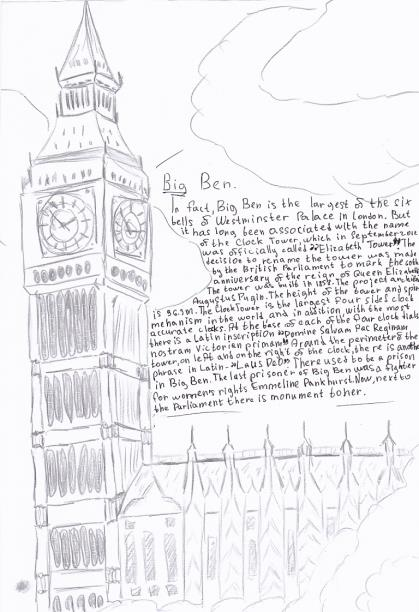 Big Ben.
In fact, Big Ben is the largest of the six
bells of Westminster Palace in London. But
it has long been associated with the name
of the Clock Tower, which in September 2012
was officially called "Elizabeth Tower". The
decision to rename the tower was made
by the British Parliament to mark the 60th
anniversary of the reign of Queen Elizabeth
The tower was built in 1858. The project architect
Augustus Pugin. The height of the tower and spire
is 96.3m. The Clock Tower is the largest four sides clock
mehanism in the world and in addition with the most
accurate clocks. At the base of each of the four clock dials
there is a Latin inscription "Domine Salvam Fac Reginam
nostram Victoriam primam" Around the perimeter of the
tower, on left and on the right of the clock, there is another
phrase in Latin - "Laus Deo" There used to be a prison
in Big Ben. The last prisoner of Big Ben was a fighter
for women's rights Emmeline Pankhurst. Now, next to
the Parliament there is monument to her.